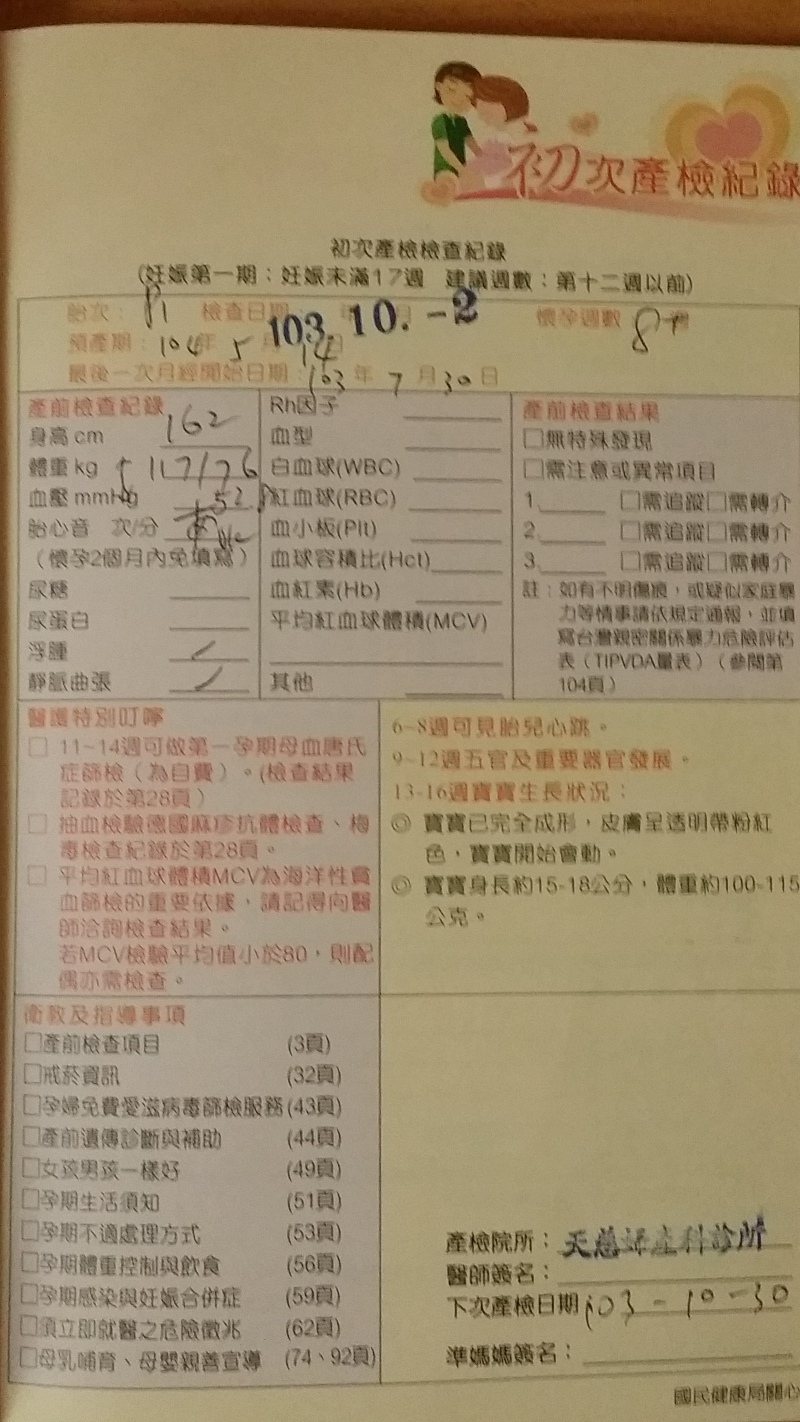 初次產檢紀錄
初次產檢檢查紀錄
(妊娠第一期：妊娠未滿17週 建議週數：第十二週以前)
胎次： P1 檢查日期 103.10.-2 懷孕週數 8+
預產期：104年5月14日
最後一次月經開始日期：103年7月30日
產前檢查紀錄
身高cm 162
體重kg
血壓mmHg 117/76
胎心音 次/分
（懷孕2個月內免填寫）
尿糖
尿蛋白
浮腫
靜脈曲張
Rh因子
血型
白血球(WBC)
紅血球(RBC)
血小板(Plt)
血球容積比(Hct)
血紅素(Hb)
平均紅血球體積(MCV)
其他
產前檢查結果
□無特殊發現
□需注意或異常項目
1. □需追蹤□需轉介
2. □需追蹤□需轉介
3. □需追蹤□需轉介
註：如有不明傷痕，或疑似家庭暴
力等情事請依規定通報，並填
寫台灣親密關係暴力危險評估
表（TIPVDA量表）（參閱第
104頁）
醫護特別叮嚀
□ 11-14週可做第一孕期母血唐氏
症篩檢（為自費）。(檢查結果
記錄於第28頁）
□ 抽血檢驗德國麻疹抗體檢查、梅
毒檢查紀錄於第28頁。
□ 平均紅血球體積MCV為海洋性貧
血篩檢的重要依據，請記得向醫
師洽詢檢查結果。
若MCV檢驗平均值小於80，則配
偶亦需檢查。
6-8週可見胎兒心跳。
9-12週五官及重要器官發展。
13-16週寶寶生長狀況：
◎ 寶寶已完全成形，皮膚呈透明帶粉紅
色，寶寶開始會動。
◎ 寶寶身長約15-18公分，體重約100-115
公克。
衛教及指導事項
□產前檢查項目 (3頁)
□戒菸資訊 (32頁)
□孕婦免費愛滋病毒篩檢服務(43頁)
□產前遺傳診斷與補助 (44頁)
□女孩男孩一樣好 (49頁)
□孕期生活須知 (51頁)
□孕期不適處理方式 (53頁)
□孕期體重控制與飲食 (56頁)
□孕期感染與妊娠合併症 (59頁)
□須立即就醫之危險徵兆 (62頁)
□母乳哺育、母嬰親善宣導 (74、92頁)
產檢院所：天慈婦產科診所
醫師簽名：
下次產檢日期103-10-30
準媽媽簽名：
國民健康局關心